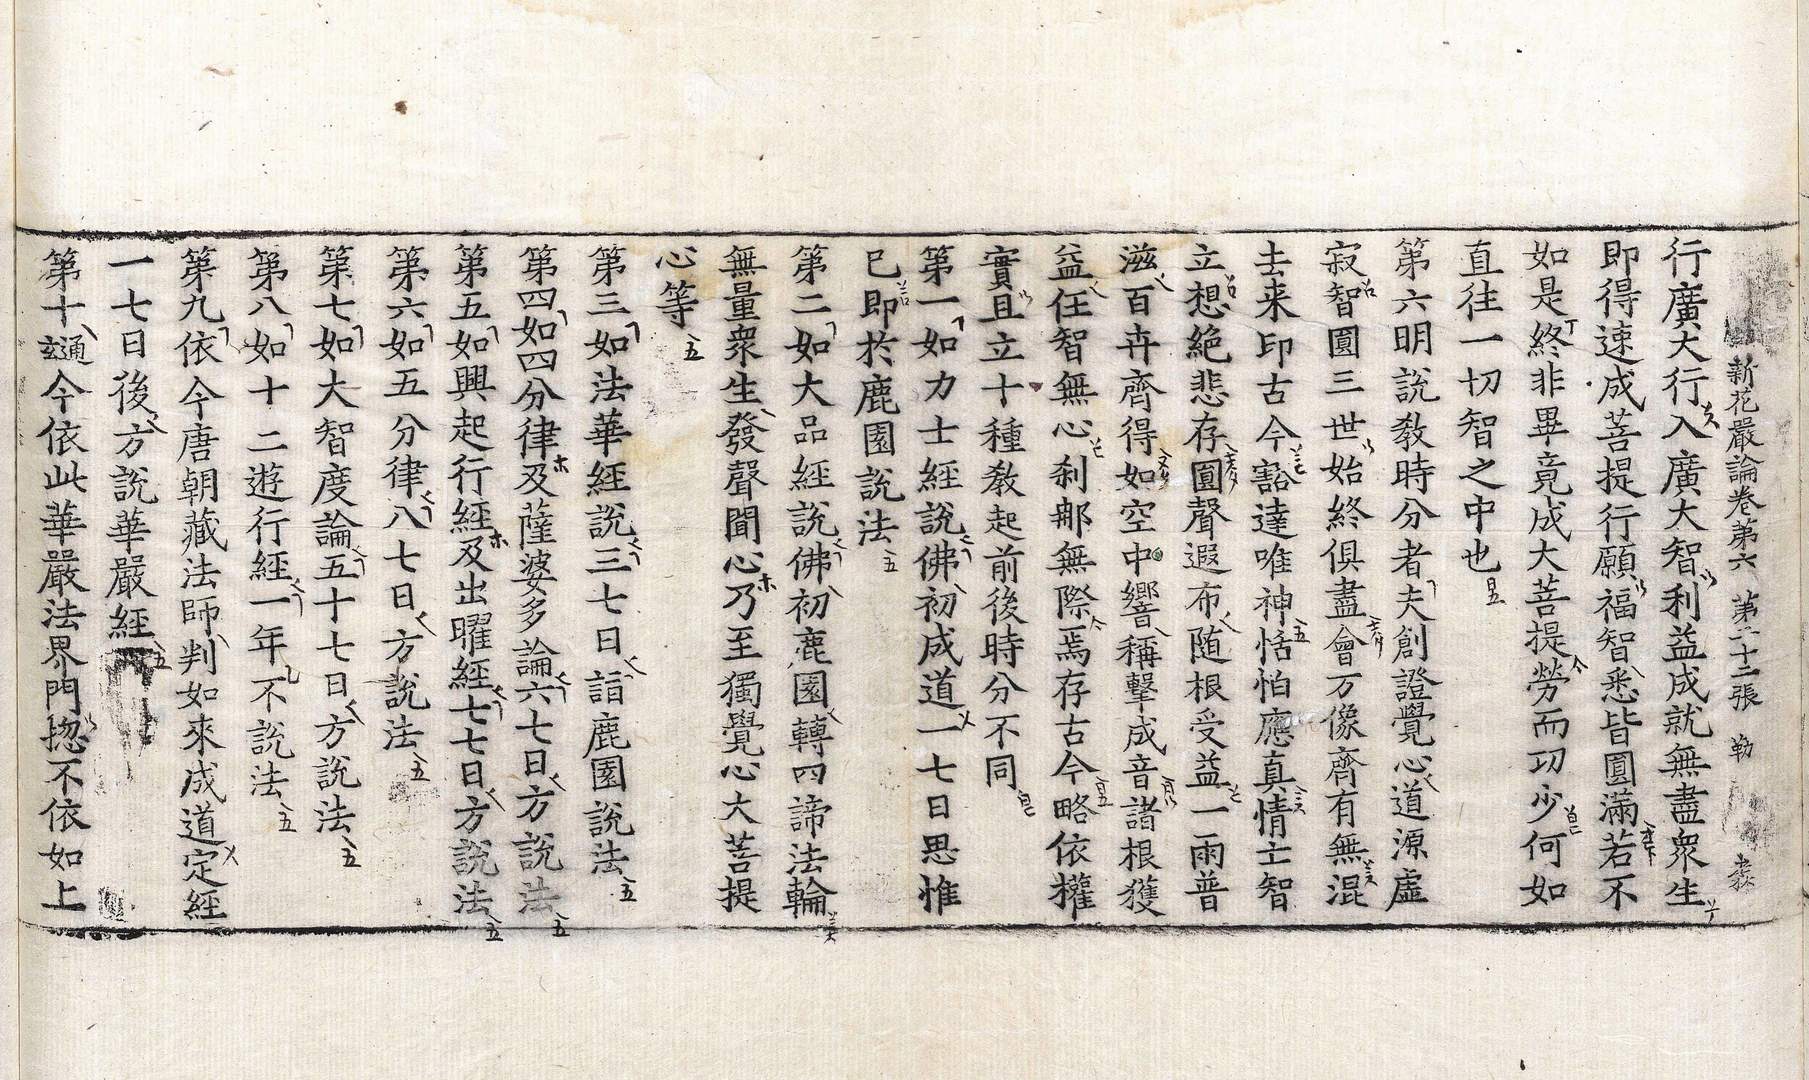 新花嚴論卷第六 第二十二張 勒
行廣大行入廣大智利益成就無盡衆生
即得速成菩提行願福智悉皆圓滿若不
如是終非畢竟成大菩提勞而功少何如
直往一切智之中也
第六明說教時分者夫創證覺心道源虛
寂智圓三世始終俱盡會万像齊有無混
去来印古今豁達唯神恬怕應真情亡智
立想絕悲存圓聲遐布随根受益一雨普
滋百卉齊得如空中響稱擊成音諸根獲
益任智無心刹那無際焉存古今略依權
實且立十種教起前後時分不同
第一如力士經說佛初成道一七日思惟
已即於鹿園說法
第二如大品經說佛初鹿園轉四諦法輪
無量衆生發聲聞心乃至獨覺心大菩提
心等
第三如法華經說三七日詣鹿園說法
第四如四分律及薩婆多論六七日方說法
第五如興起行經及出曜經七七日方說法
第六如五分律八七日方說法
第七如大智度論五十七日方說法
第八如十二遊行經一年不說法
第九依今唐朝藏法師判如來成道定經
一七日後方說華嚴經
第十通玄今依此華嚴法界門揔不依如上